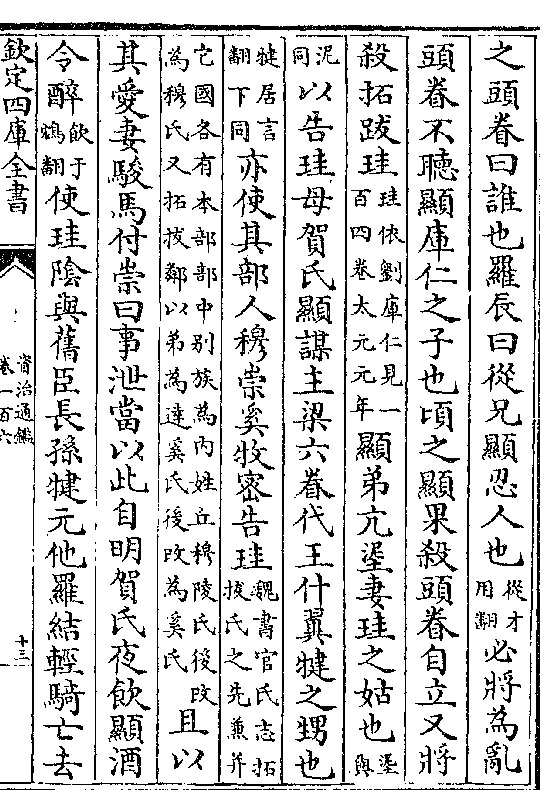 之頭眷曰誰也羅辰曰從兄顯忍人也從才用翻必將為亂
頭眷不聽顯庫仁之子也頃之顯果殺頭眷自立又將
殺拓跋珪珪依劉庫仁見一百四卷太元元年顯弟亢埿妻珪之姑也埿與
泥同以告珪母賀氏顯謀主梁六眷代王什翼犍之甥也
犍居言翻下同亦使其部人穆崇奚牧密告珪魏書官氏志拓拔氏之先兼并
它國各有本部部中别族為内姓丘穆陵氏後改為穆氏又拓拔鄰以弟為達奚氏後改為奚氏且以
其愛妻駿馬付崇曰事泄當以此自明賀氏夜飲顯酒
令醉飲于鴆翻使珪隂與舊臣長孫犍元他羅結輕騎亡去
欽定四庫全書
資治通鑑
卷一百六
十三